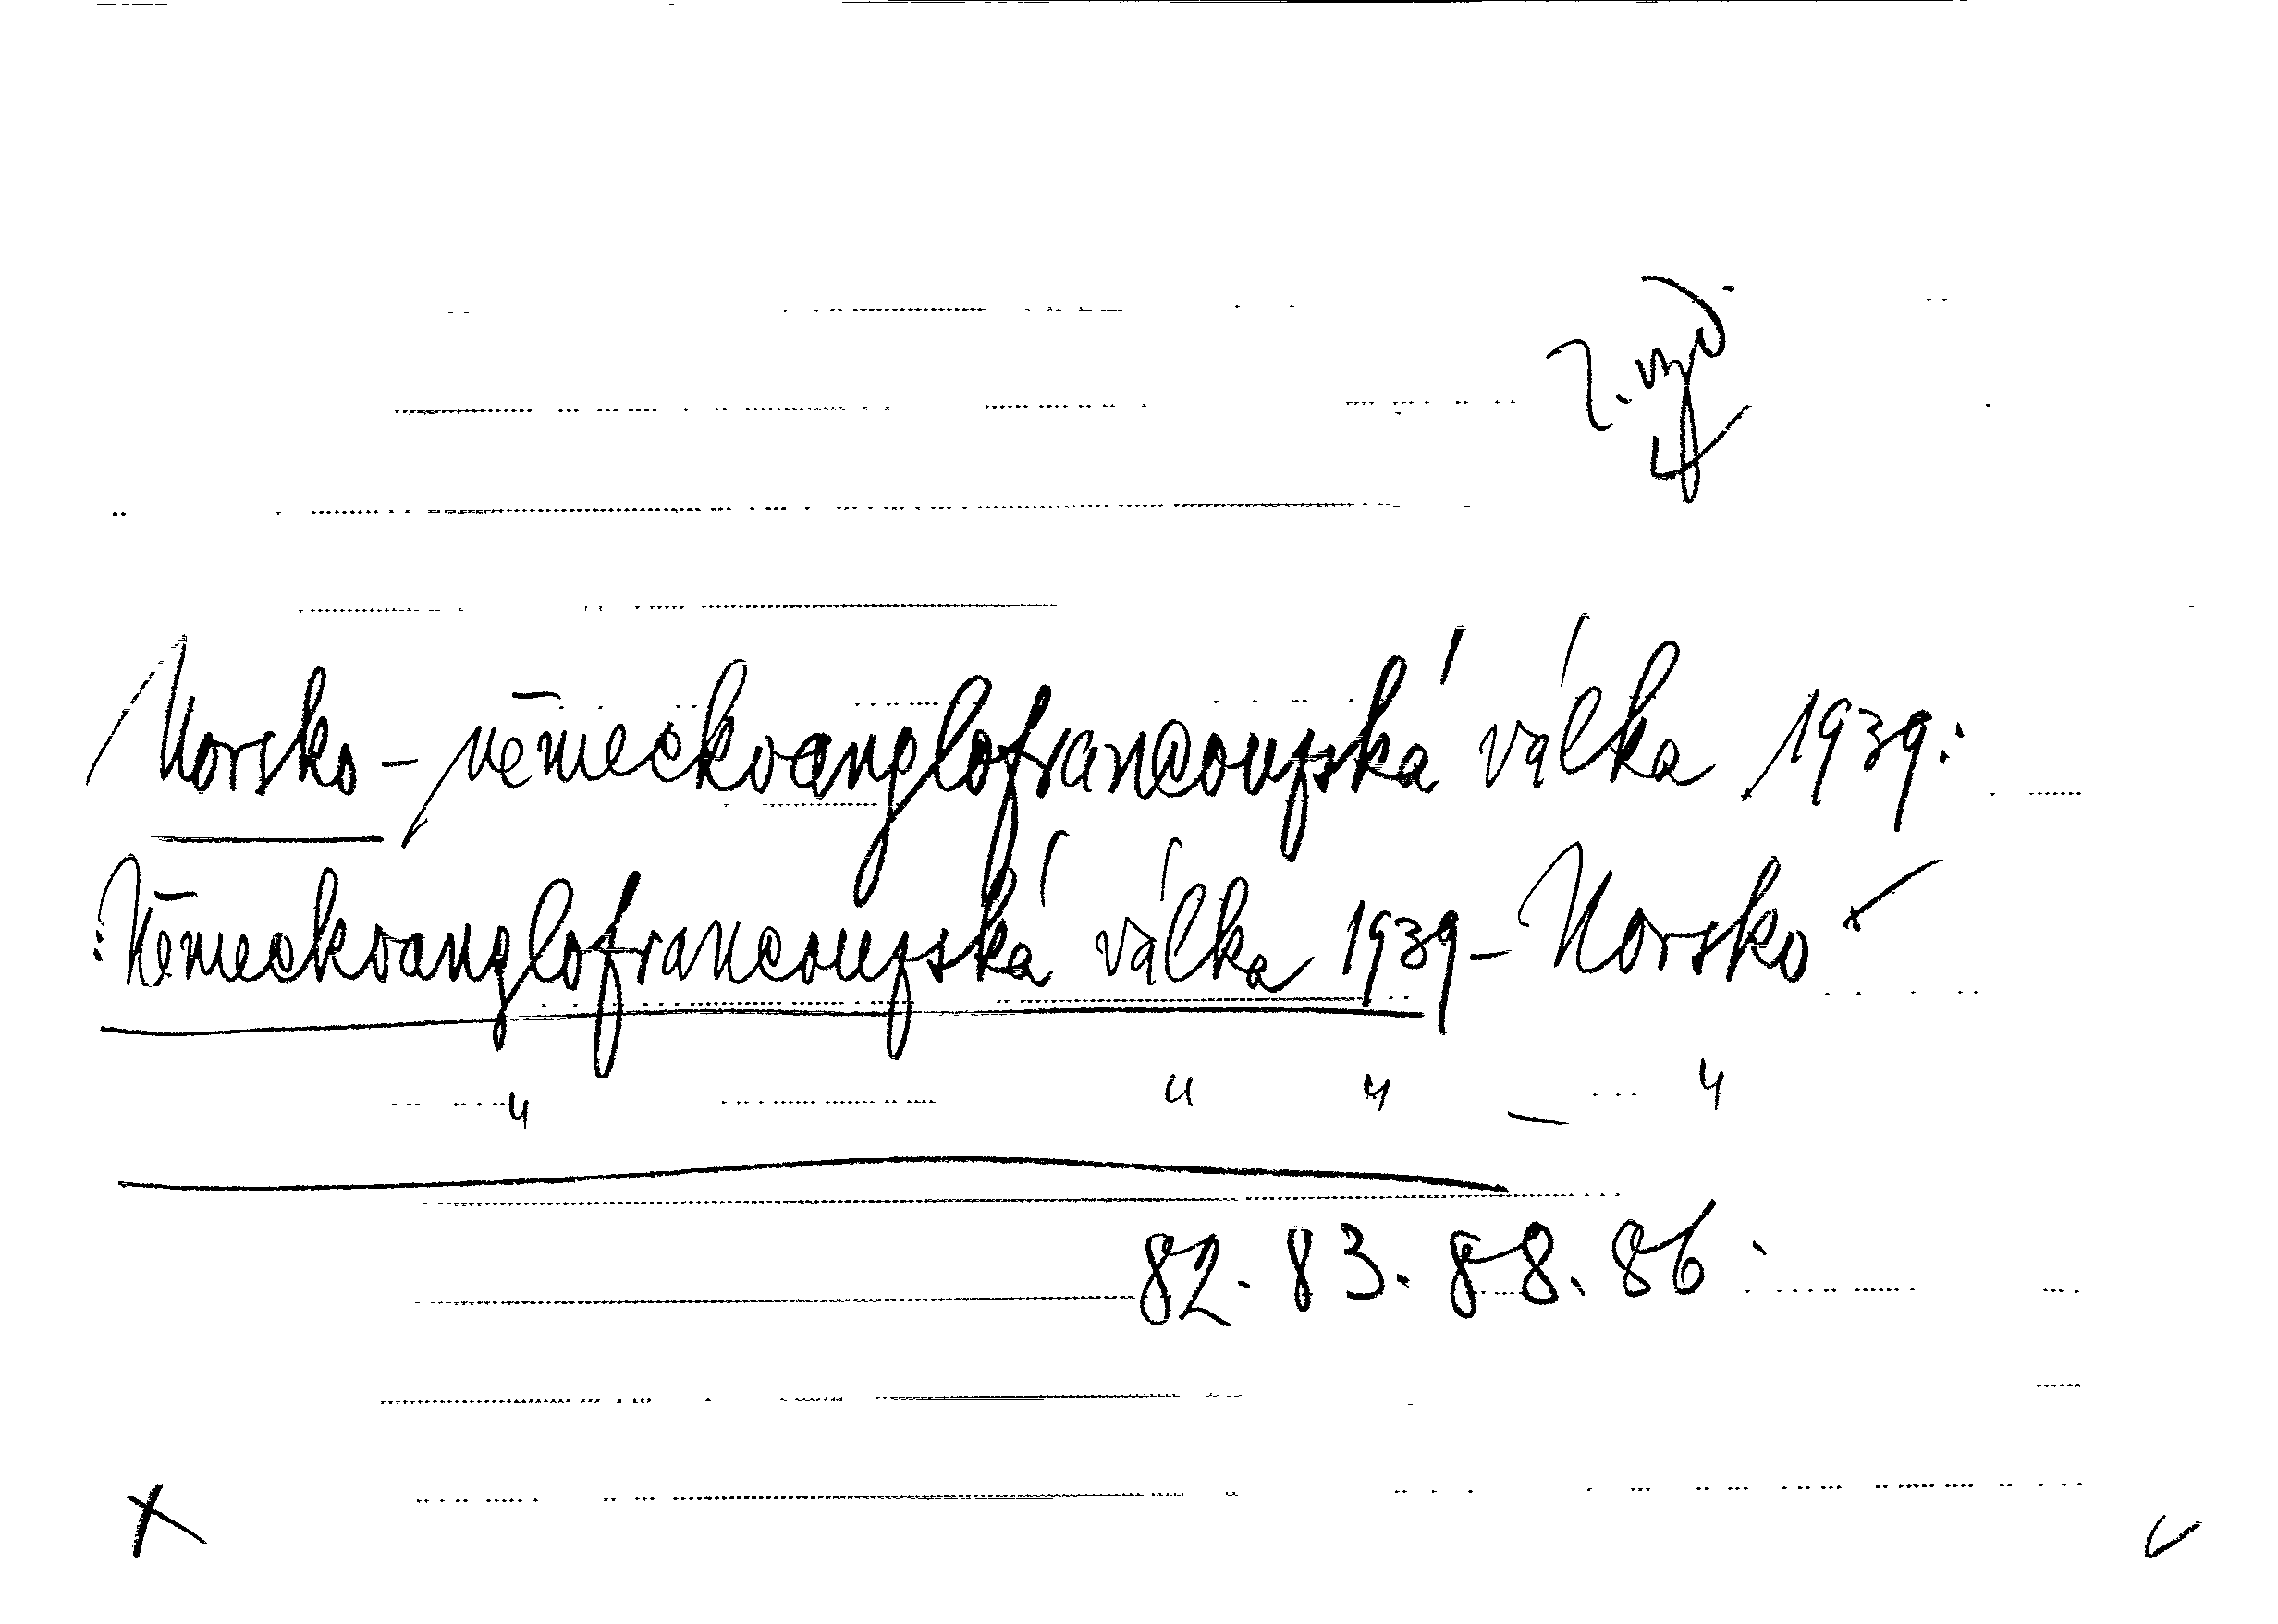 Norsko - německoanglofrancouzská válka 1939:
:Německoanglofrancouzská válka 1939 - Norsko
" " " - "
82. 83. 88. 86.